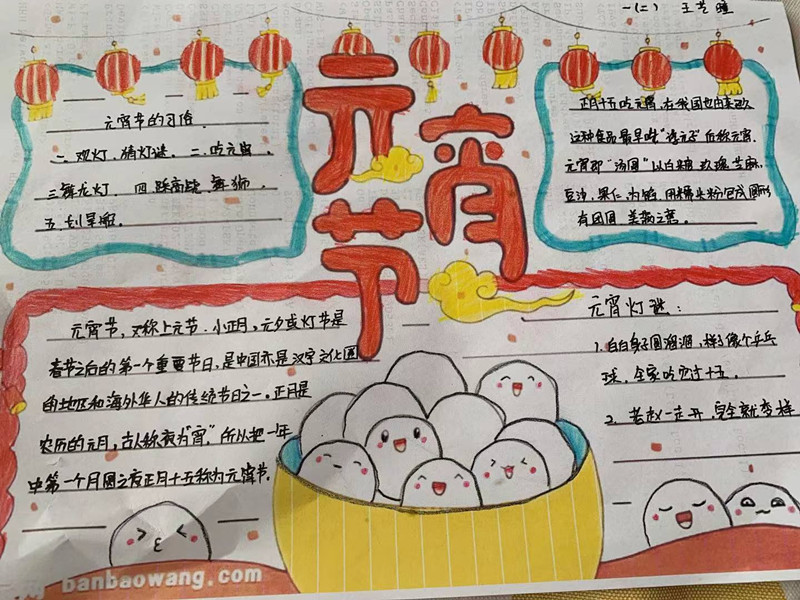 一(二) 王艺瞳
元宵节
元宵节的习俗
一、观灯、猜灯谜。二、吃元宵。
三舞龙灯. 四.踩高跷 舞狮.
五.划旱船.
正月十五吃元宵,在我国也由来已
这种食品最早叫"浮元子"后称元宵.
元宵即"汤圆"以白糖 玫瑰 芝麻.
豆沙.果仁.为馅.用糯米粉包成圆形
有团圆 美满之意.
元宵节,又称上元节.小正月,元夕或灯节是
春节之后的第一个重要节日,是中国亦是汉字文化圈
的地区和海外华人的传统节日之一。正月是
农历的元月,古人称夜为"宵",所以把一年
中第一个月圆之夜正月十五称为元宵节.
元宵灯谜:
1.白白身子圆溜溜,样子像个乒乓
球.全家吃它过十五.
2.老赵一走开,完全就变样
banbaowang.com